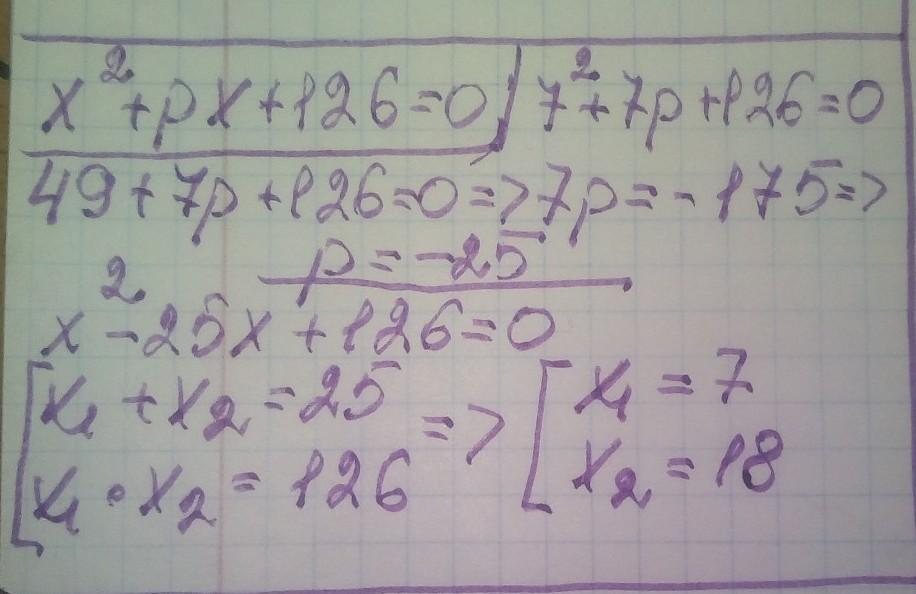 x²+px+126=0 | 7²+7p+126=0
49+7p+126=0=>7p=-175=>
p=-25
x²-25x+126=0
[x₁+x₂=25 => [x₁=7
x₁·x₂=126 x₂=18